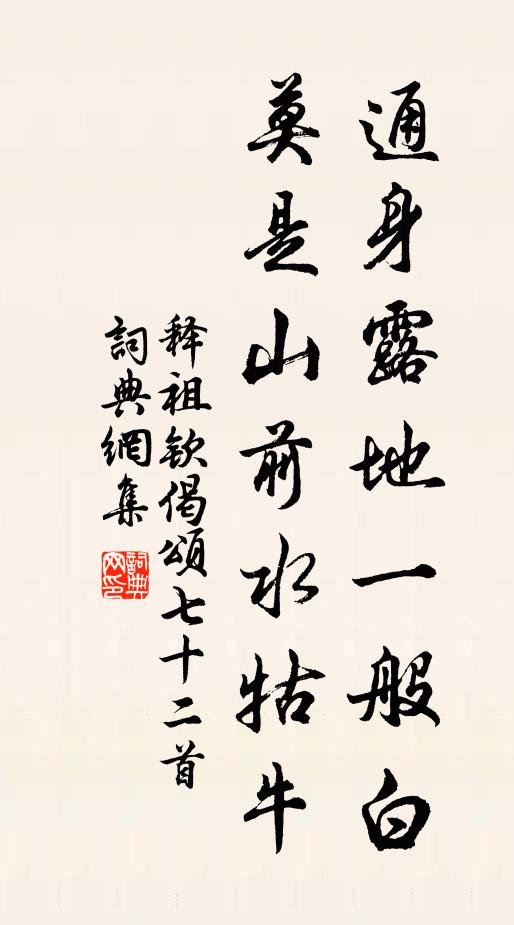 通身露地一般白
莫是山前水牯牛
释祖钦偈颂七十二首
詞典網集
詞典网印